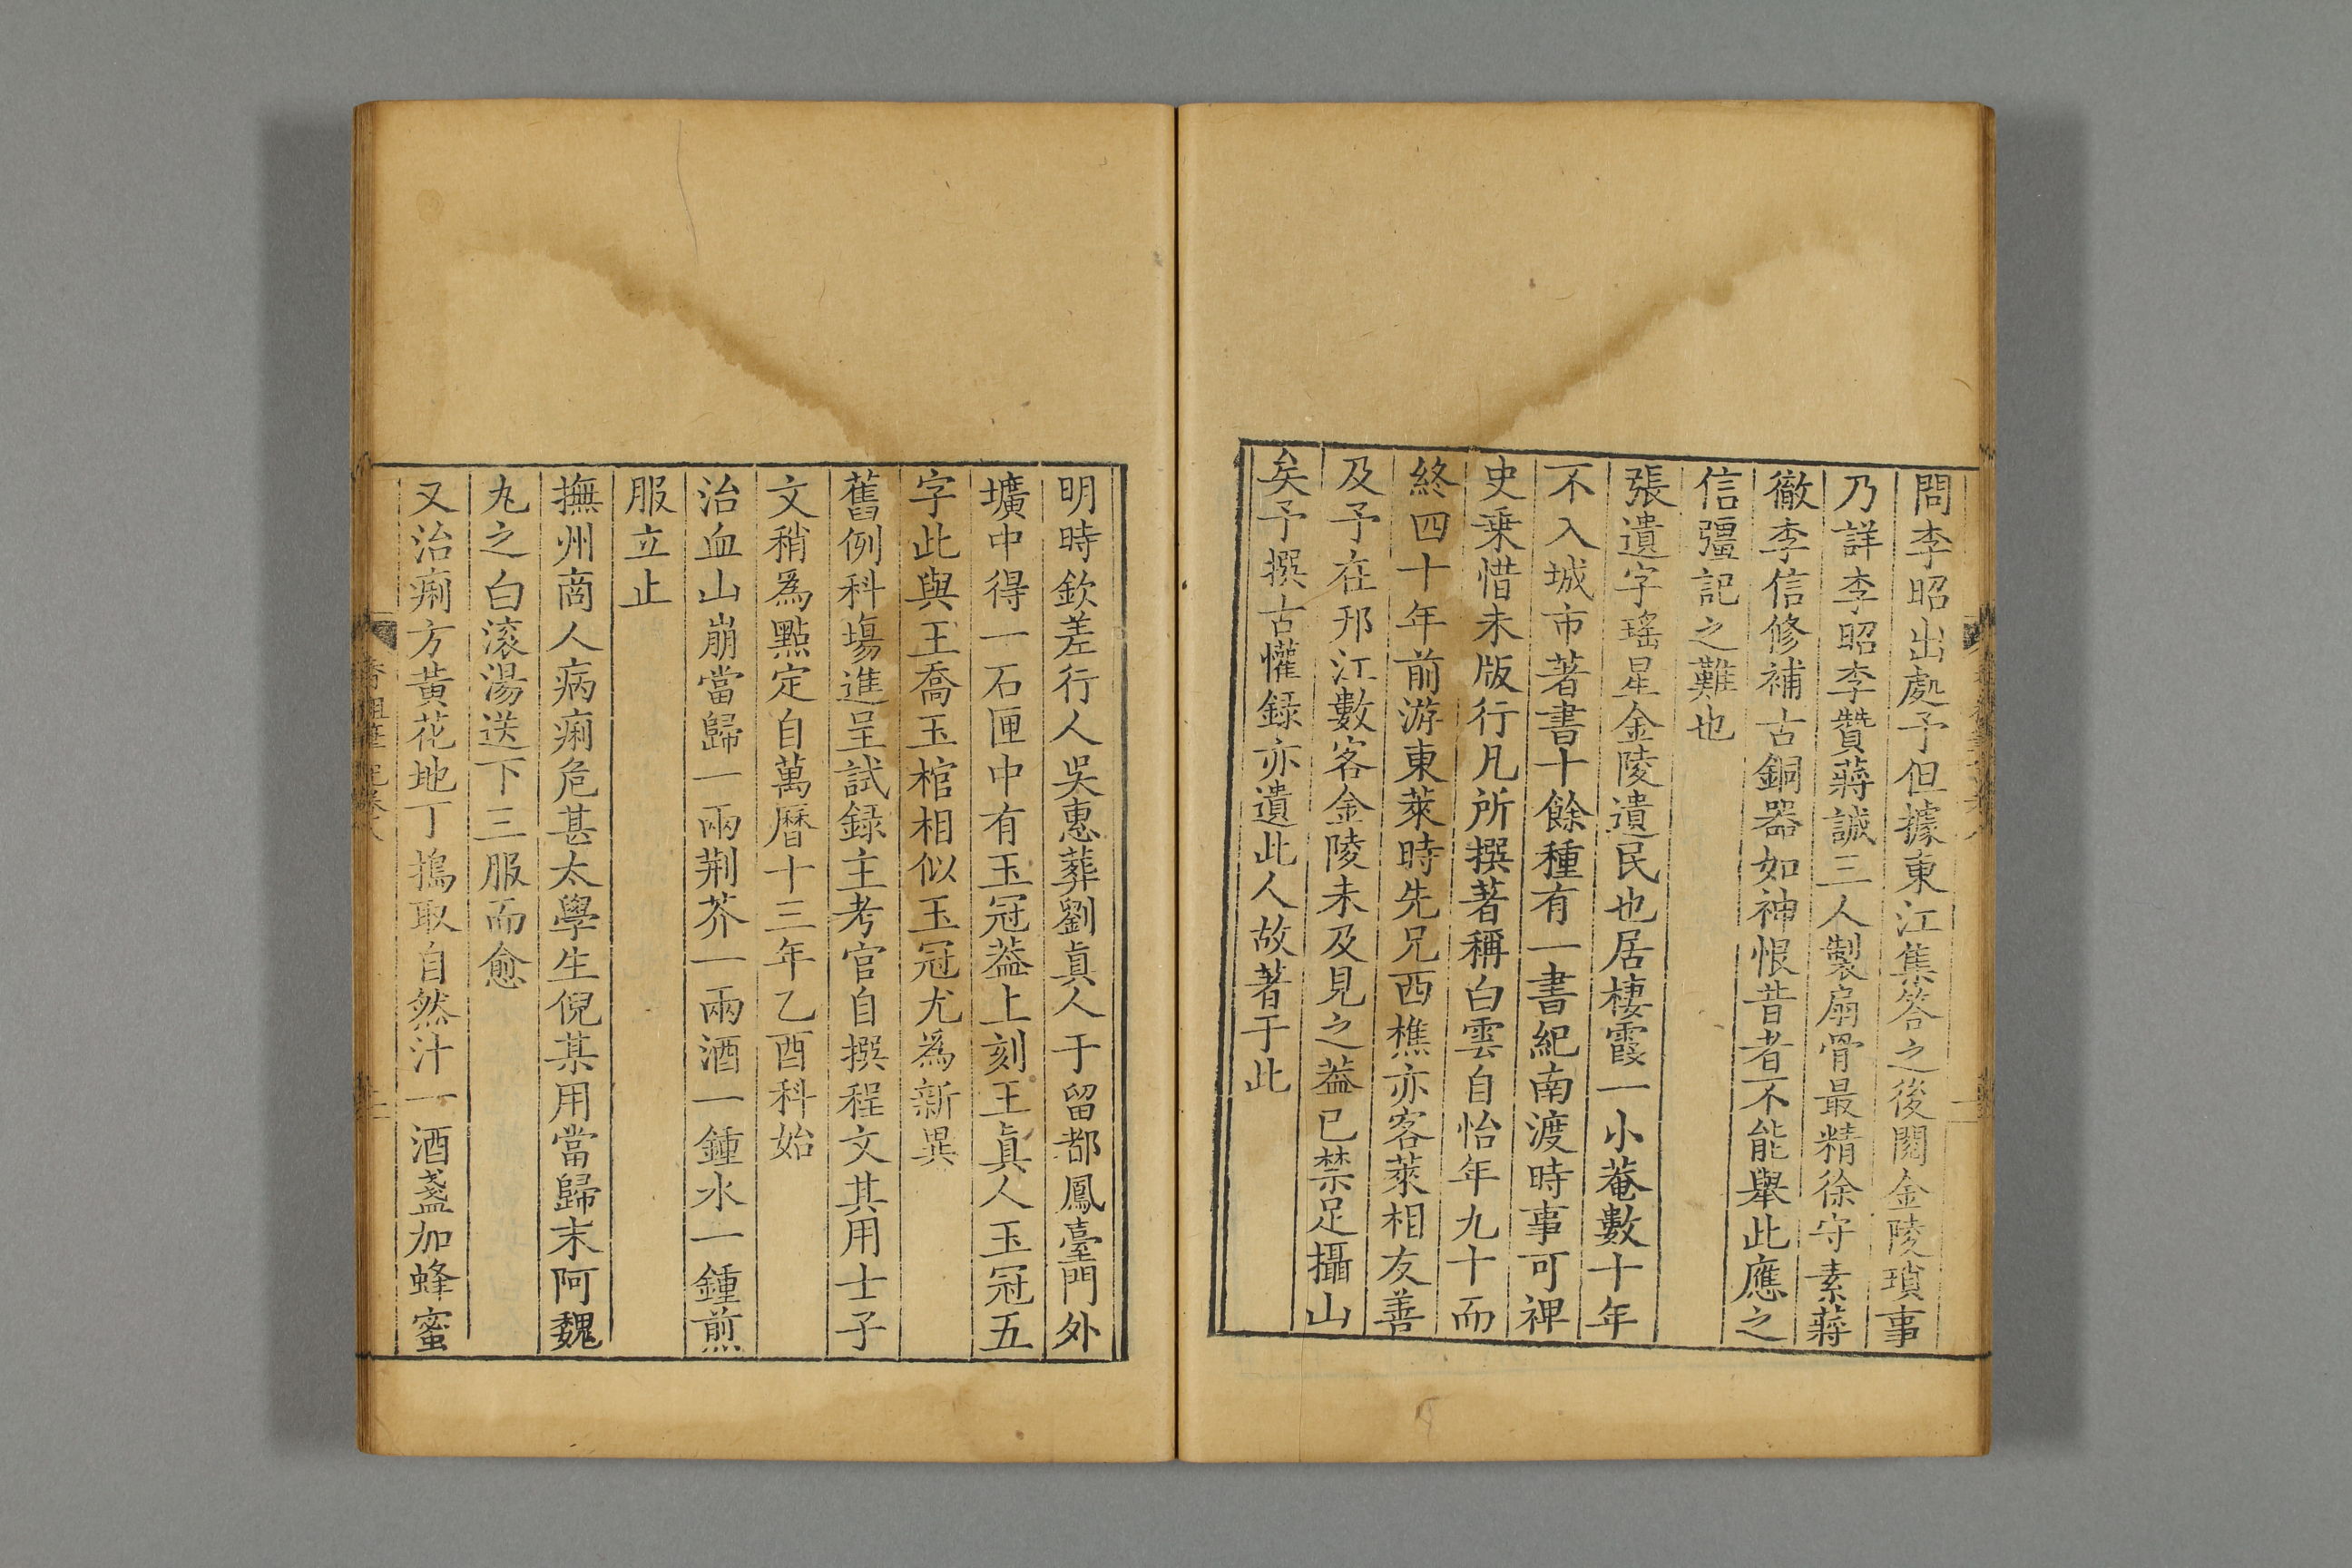 問李昭出處予但據東江集答之後閱金陵瑣事
乃詳李昭李贊蔣誠三人製扇骨最精徐守素蔣
徹李信修補古銅器如神恨昔者不能舉此應之
信彊記之難也
張遺字瑤星金陵遺民也居棲霞一小菴數十年
不入城市著書十餘種有一書紀南渡時事可裨
史乗惜未版行凡所撰著稱白雲自怡年九十而
終四十年前游東萊時先兄西樵亦客萊相友善
及予在邗江數客金陵未及見之葢已禁足攝山
矣予撰古懽録亦遺此人故著于此
明時欽差行人吳惠葬劉眞人于留都鳳臺門外
壙中得一石匣中有玉冠葢上刻王眞人玉冠五
字此與王喬玉棺相似玉冠尤爲新異
舊例科塲進呈試録主考官自撰程文其用士子
文稍爲點定自萬曆十三年乙酉科始
治血山崩當歸一兩荆芥一兩酒一鍾水一鍾煎
服立止
撫州商人病痢危甚太學生倪某用當歸末阿魏
丸之白滚湯送下三服而愈
又治痢方黃花地丁搗取自然汁一酒盞加蜂蜜